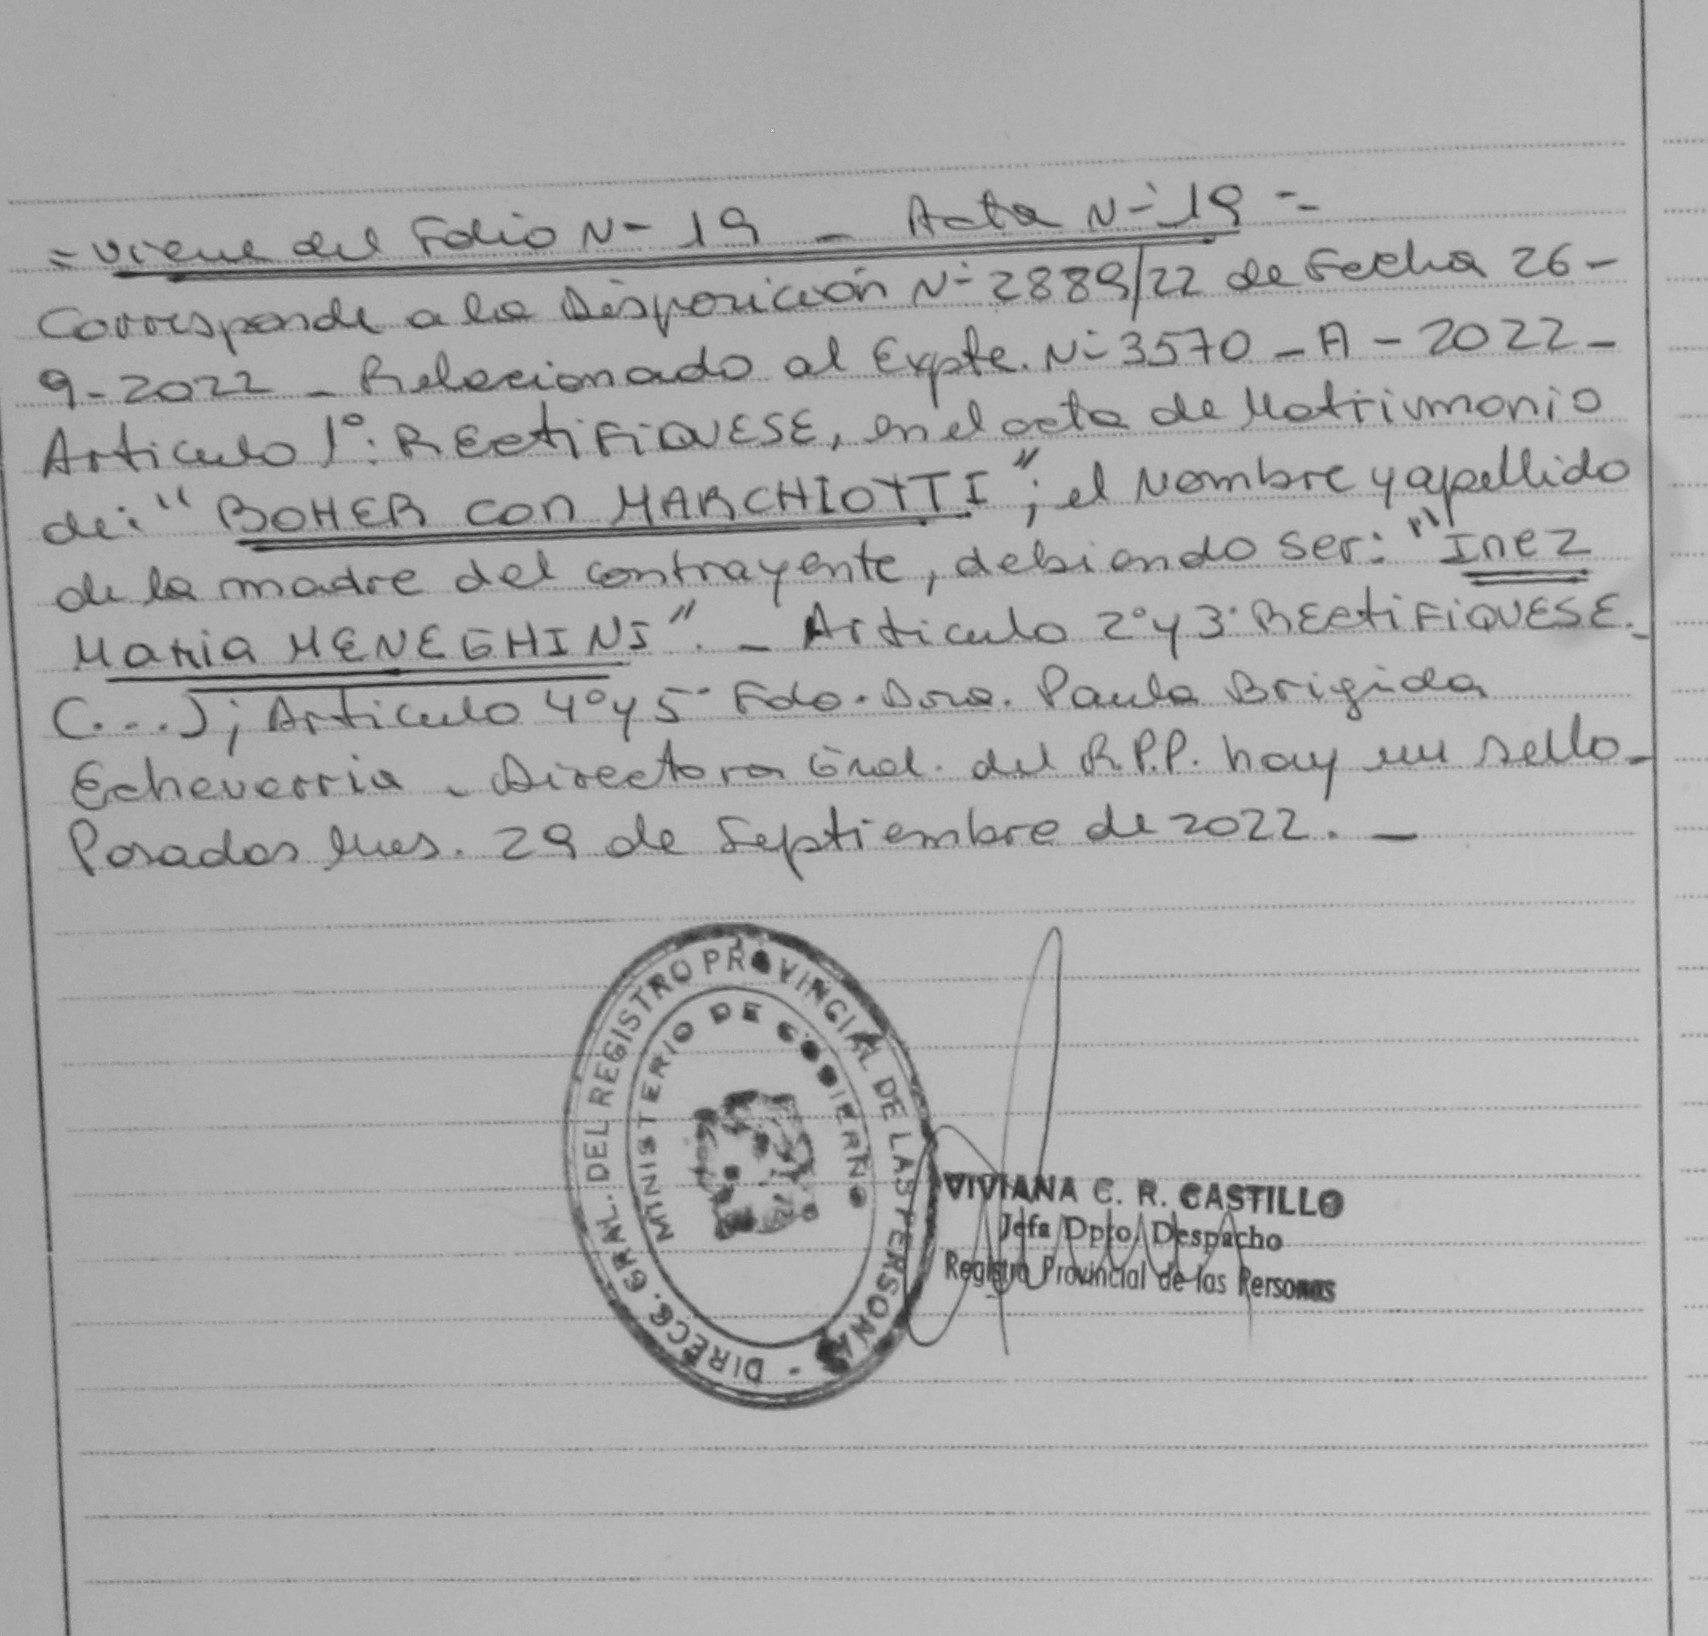 = Viene del Folio N- 19 - Acta N- 19 =
Corresponde a la Disposición N- 2889/22 de Fecha 26-
9-2022 - Relacionado al Expte. N- 3570 - A - 2022 -
Articulo 1°: RECtiFiQUESE, en el acta de Matrimonio
de: "BOHER con MARCHIOTTI"; el Nombre y apellido
de la madre del contrayente, debiendo ser: "Inez
Maria MENEGHINI". - Articulo 2° y 3° RECtiFiQUESE.
(...); Articulo 4° y 5° Fdo. Dra. Paula Brigida
Echeverria - Directora Gral. del R.P.P. hay un sello -
Posadas Mnes. 29 de Septiembre de 2022. -
DIRECC. GRAL. DEL REGISTRO PROVINCIAL DE LAS PERSONAS -
MINISTERIO DE GOBIERNO
VIVIANA C. R. CASTILLO
Jefa Dpto. Despacho
Registro Provincial de las Personas